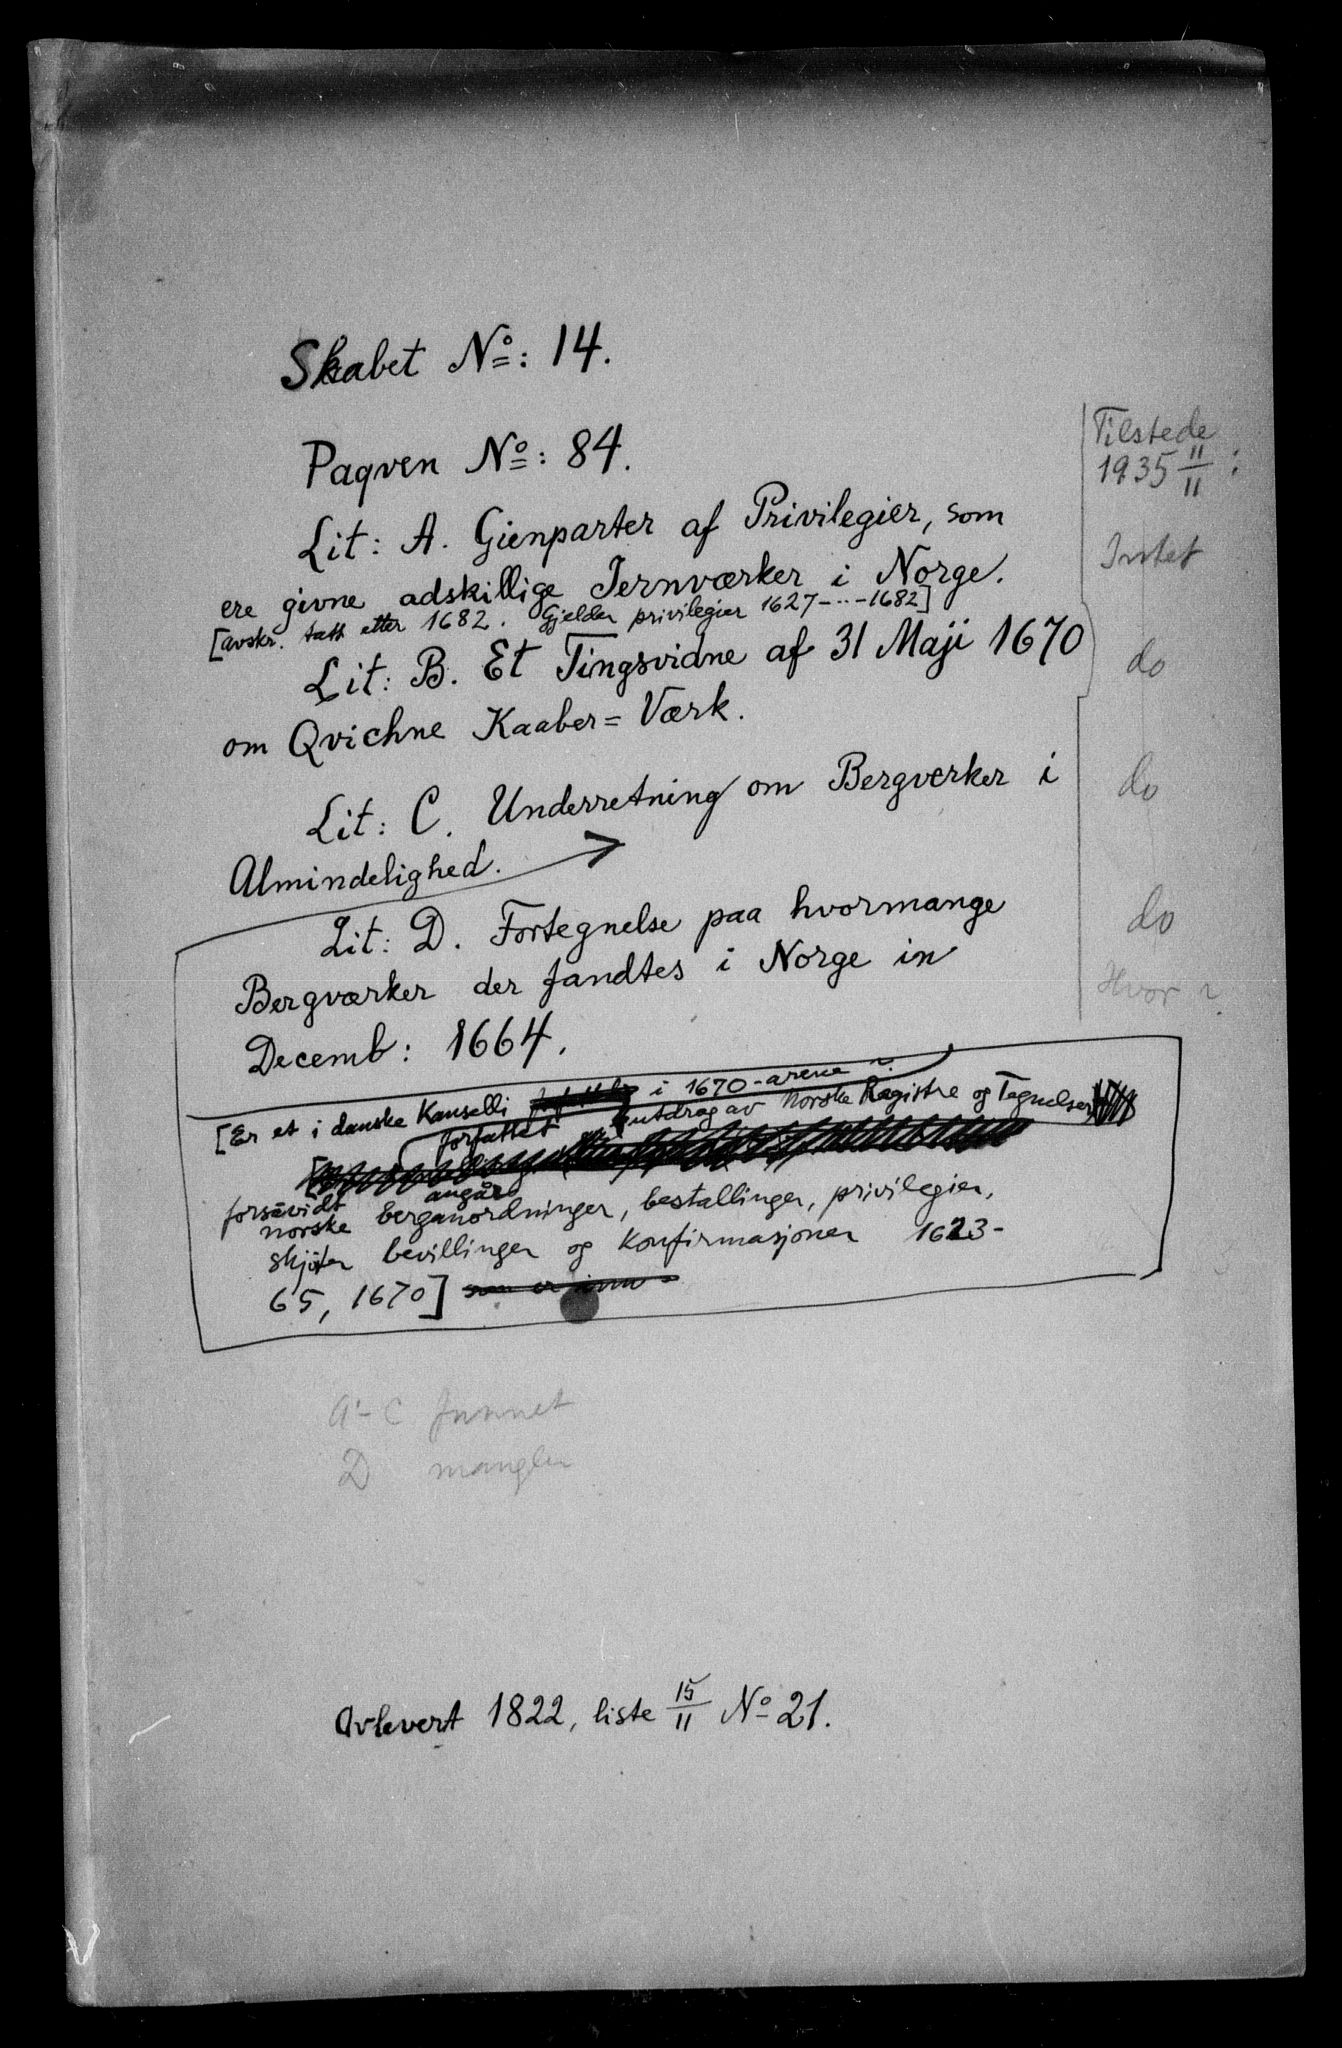 Skabet No: 14.
Paqven No: 84.
Lit: A. Gienparter af Privilegier, som
ere givne adskillige Jernværker i Norge.
[avskr. tatt etter 1682. Gjelder privilegier 1627-...-1682]
Lit: B. Et Tingsvidne af 31 Maji 1670
om Qvichne Kaaber= Værk.
Lit: C. Underretning om Bergverker i
Almindelighed.
Lit: D. Fortegnelse paa hvormange
Bergværker der fandtes i Norge in
Decemb: 1664.
[Er et i danske Kanselli i 1670-arene
forfattet utdrag av Norske Registre og Tegnelser
forsåvidt angår
norske berganordninger, bestallinger, privilegier,
skjøter bevillinger og konfirmasjoner 1623-
65, 1670]
Tilstede
1935 11/11 :
Intet
do
do
do
Hvor ?
A-C funnet
D mangler
Avlevert 1822, liste 15/11 No 21.